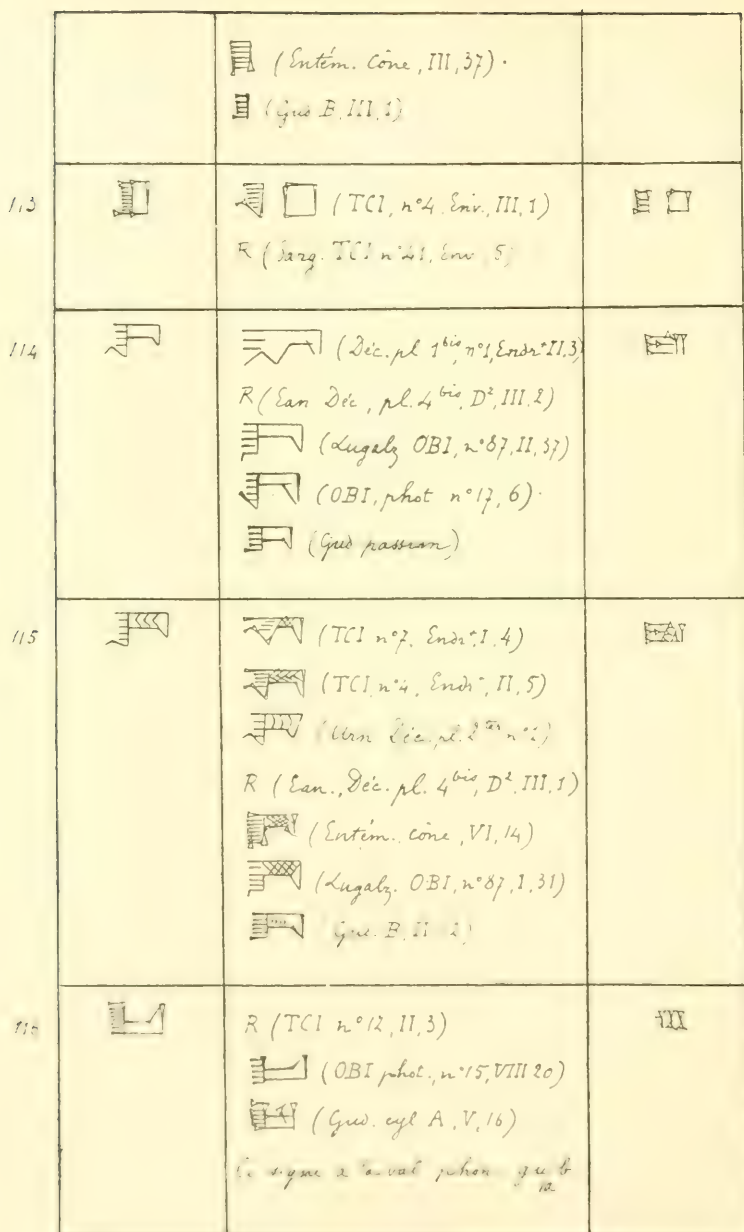 (Entém. Cône, III, 37).
(Gud B, III, 1)
113
(TCI, n°4 Env., III, 1)
R (Sarg. TCI n°41, Env 5)
114
(Déc. pl 1bis, n°1, Endrt II, 3)
R (Ean Déc, pl. 4bis, D², III. 2)
(Lugalz OBI, n°87, II, 37)
(OBI, phot n°17, 6).
(Gud passim)
115
(TCI n°7, Endrt, I, 4)
(TCI n°4, Endrt, II, 5)
(Urn Déc. pl. 2ter n°2)
R (Ean., Déc. pl. 4bis, D², III, 1)
(Entém. cône, VI, 14)
(Lugalz. OBI, n°87, I, 31)
Gud. B, II 2)
116
R (TCI n°12, II, 3)
(OBI phot., n°15, VIII 20)
(Gud. cyl A, V, 16)
Ce signe a val phon